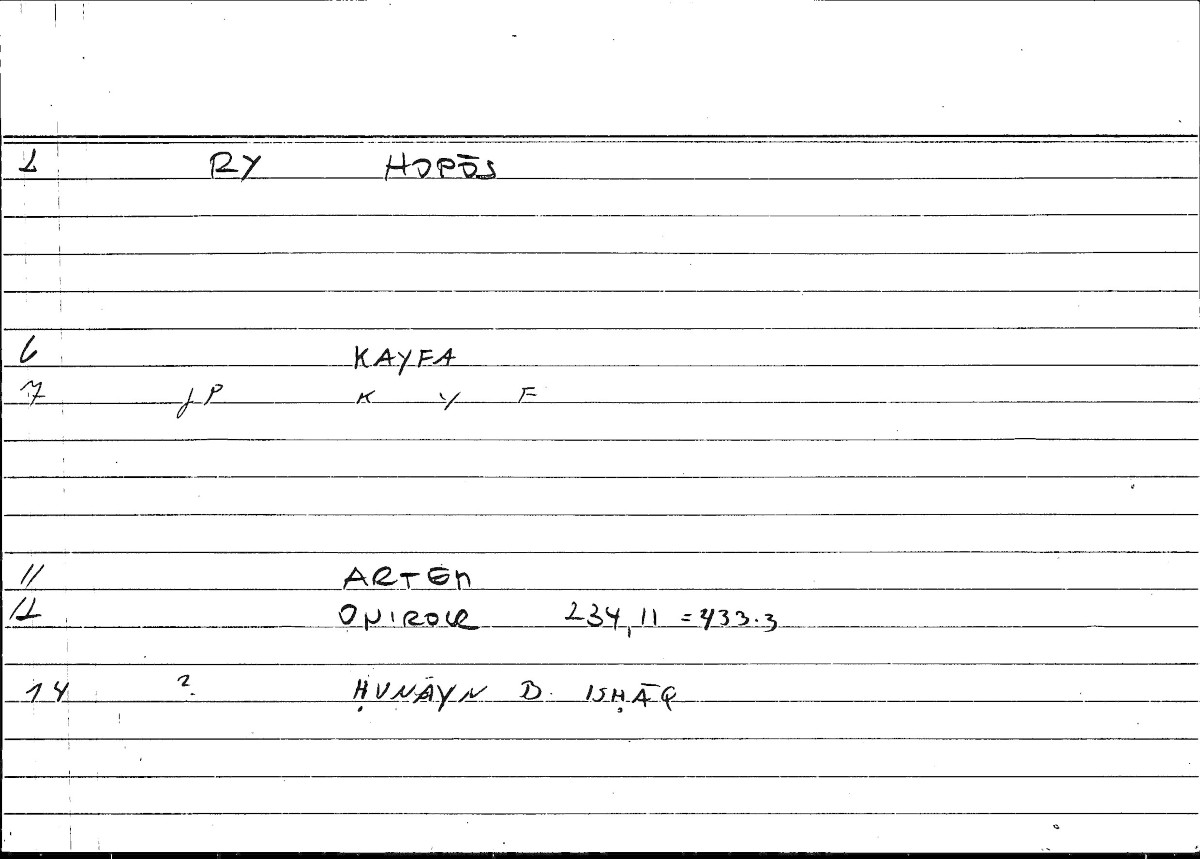 1 RY HOPŌS
6 KAYFA
7 JP K Y F
11 ARTEM
12 ONIROCR 234,11 = 433.3
14 ? ḤUNAYN B. ISḤĀQ